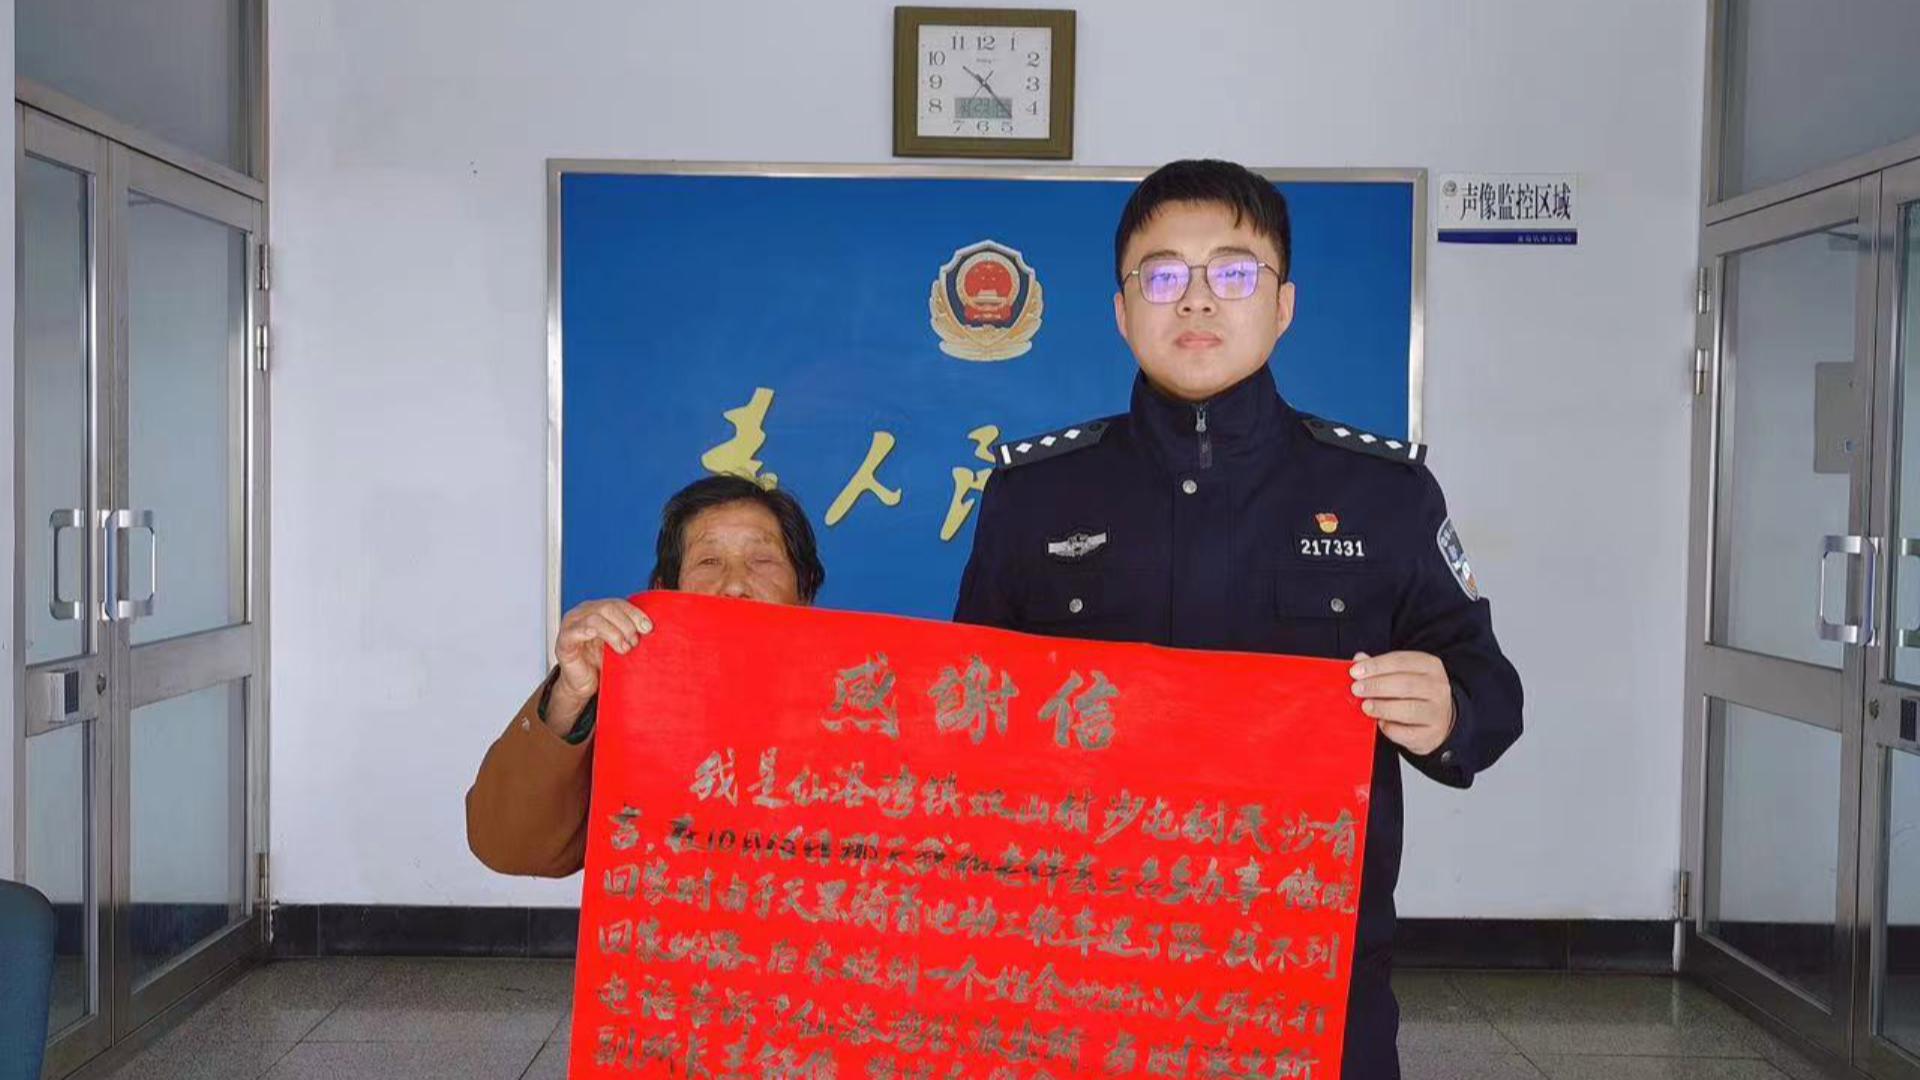 11 12 1
10 2
9 3
8 4
7 6 5
声像监控区域
人民
217331
感謝信
我是仙浴湾镇双山村沙屯村民沙有
言,在10月 那天我和老伴去三台乡办事,傍晚
回家时由于天黑骑着电动三轮车迷了路,找不到
回家的路,后来碰到一个姓金的好心人帮我打
电话告诉了仙浴湾 派出所,当时派出所
副所长